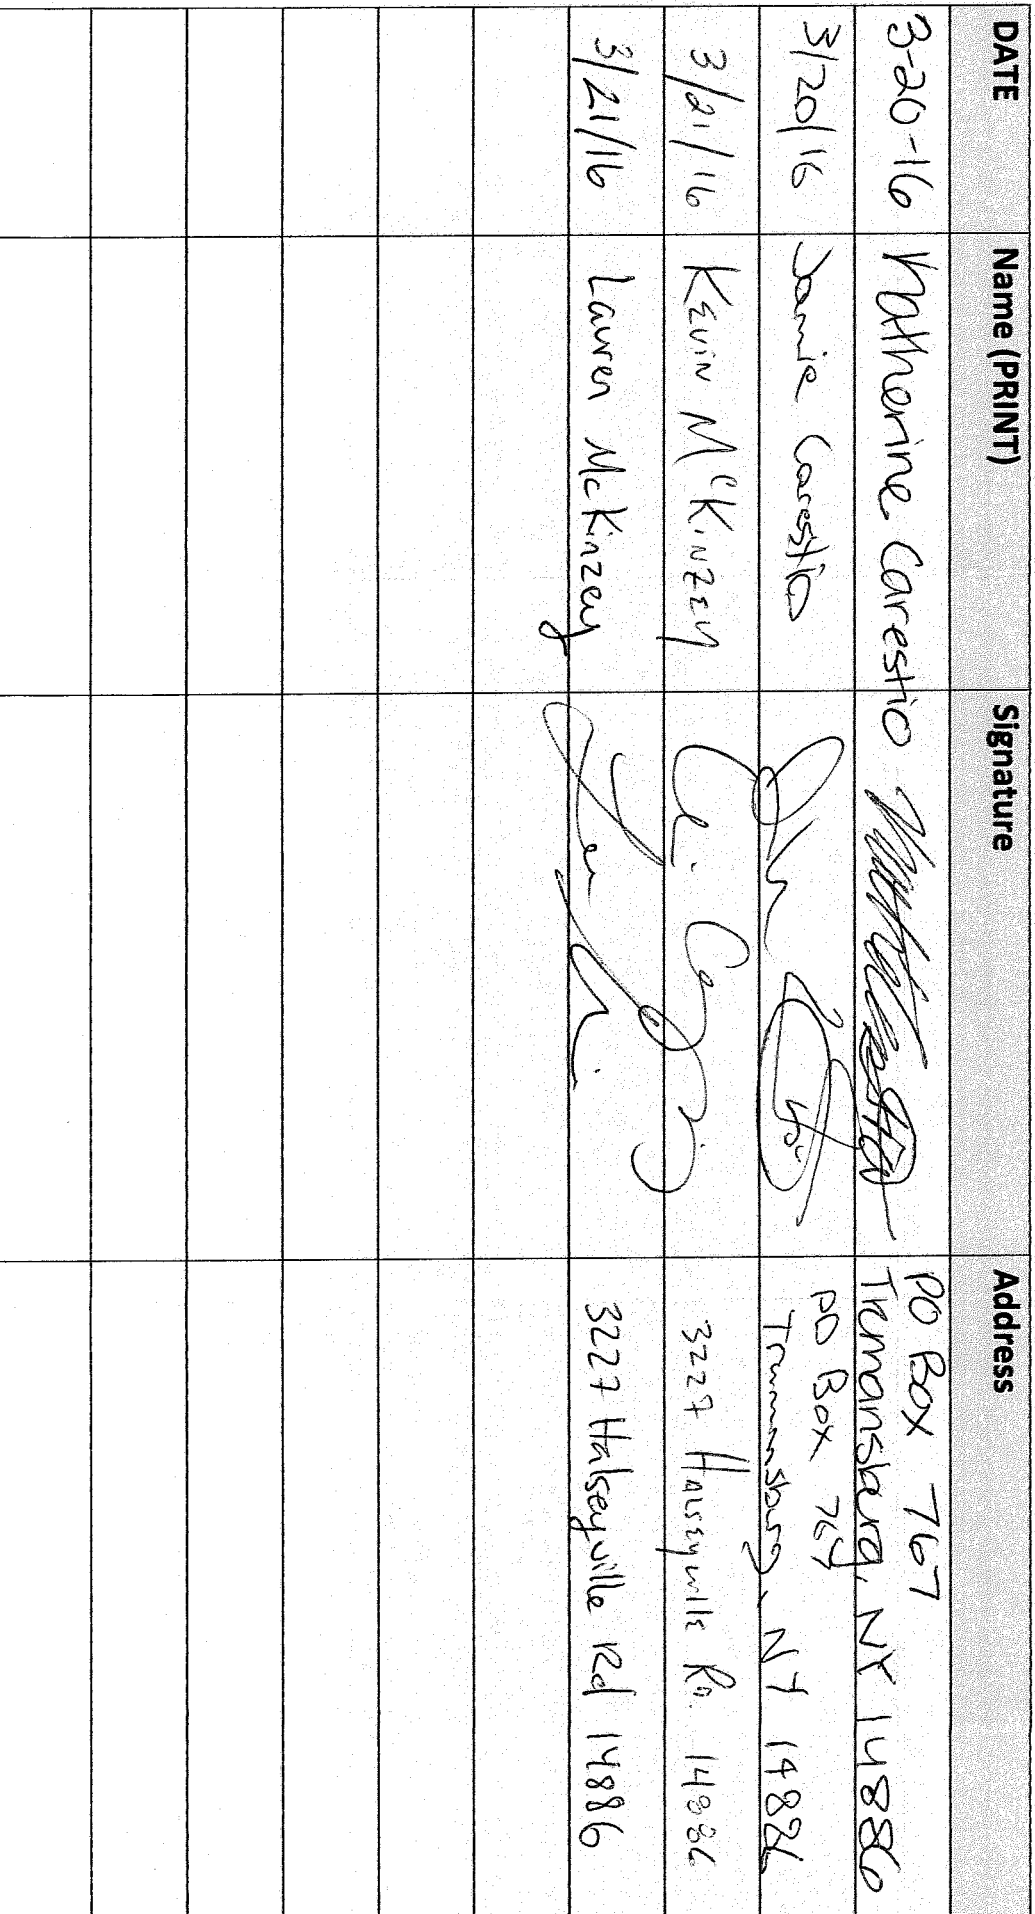 DATE Name (PRINT) Signature Address
3-20-16 Katherine Carestio PO Box 767
Trumansburg, NY 14886
3/20/16 Jamie Carestio PO Box 767
Trumansburg, NY 14886
3/21/16 Kevin McKinzey 3227 Halseyville Rd. 14886
3/21/16 Lauren McKinzey 3227 Halseyville Rd 14886